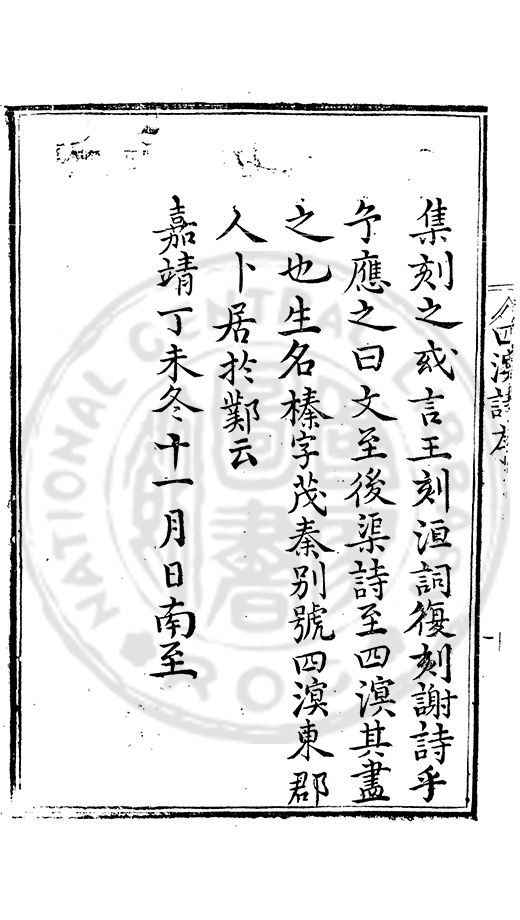 集刻之或言王刻洹詞復刻謝詩乎
予應之曰文至後渠詩至四溟其盡
之也生名榛字茂秦别號四溟東郡
人卜居於鄴云
嘉靖丁未冬十一月日南至
四溟詩序
NATIONAL CENTRAL
R O C
圖書